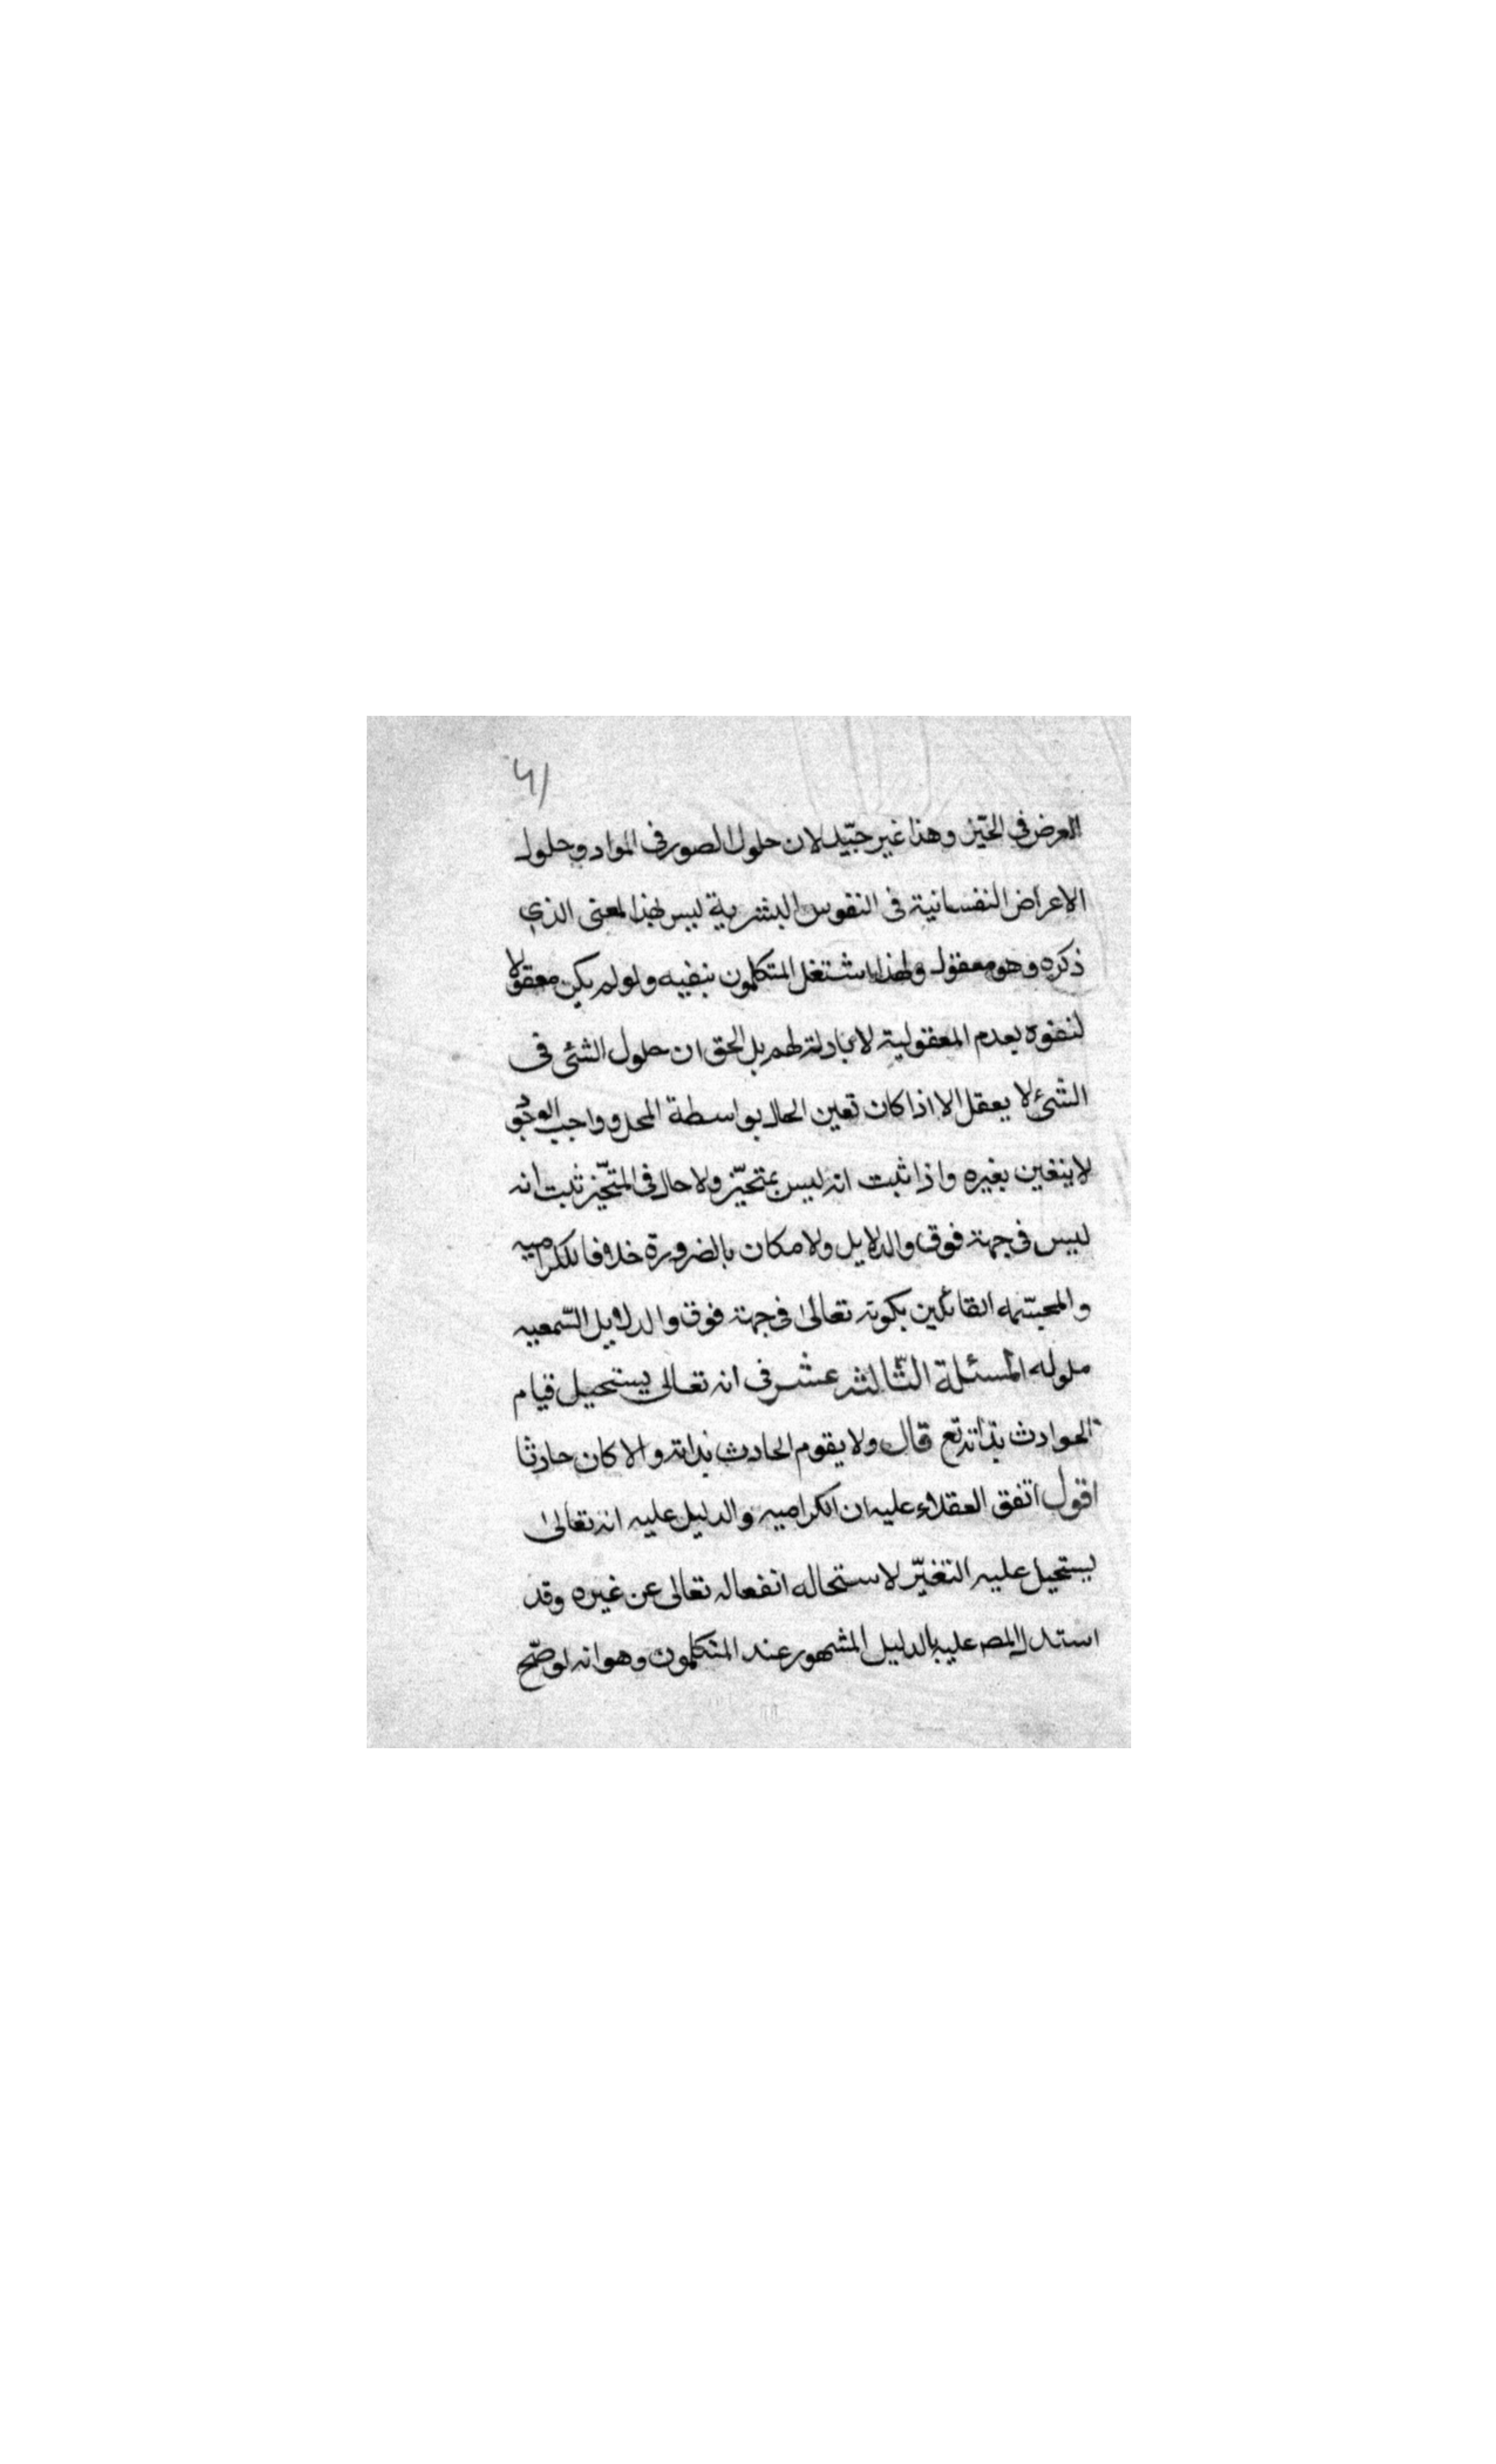 ٤١
العرض في الحيّز وهذا غير جيّد لان حلول الصور فى المواد وحلول
الاعراض النفسانية فى النفوس البشرية ليس بهذا المعنى الذي
ذكره وهو معقول ولهذا اشتغل المتكلمون بنفيه ولو لم يكن معقولا
لنفوه بعدم المعقولية لا بادلة لهم بل الحق ان حلول الشئ فى
الشئ لا يعقل الا اذا كان تعين الحال بواسطة المحل وواجب الوجو
لا يتعين بغيره واذا ثبت انه ليس بمتحيّز ولا حال فى المتحيّز ثبت انه
ليس فى جهة فوق والدلايل ولا مكان بالضرورة خلافا للكراميه
والمجسّمه القائلين بكونه تعالى فى جهة فوق والدلايل السّمعيه
ملوله المسئلة الثّالثه عشر فى انه تعالى يستحيل قيام
الحوادث بذاته تع قال ولا يقوم الحادث بذاته والا كان حادثا
اقول اتفق العقلاء عليه ان الكراميه والدليل عليه انه تعالى
يستحيل عليه التغيّر لاستحاله انفعاله تعالى عن غيره وقد
استدل المصـ عليه بالدليل المشهور عند المتكلمون وهو انه لو صّح